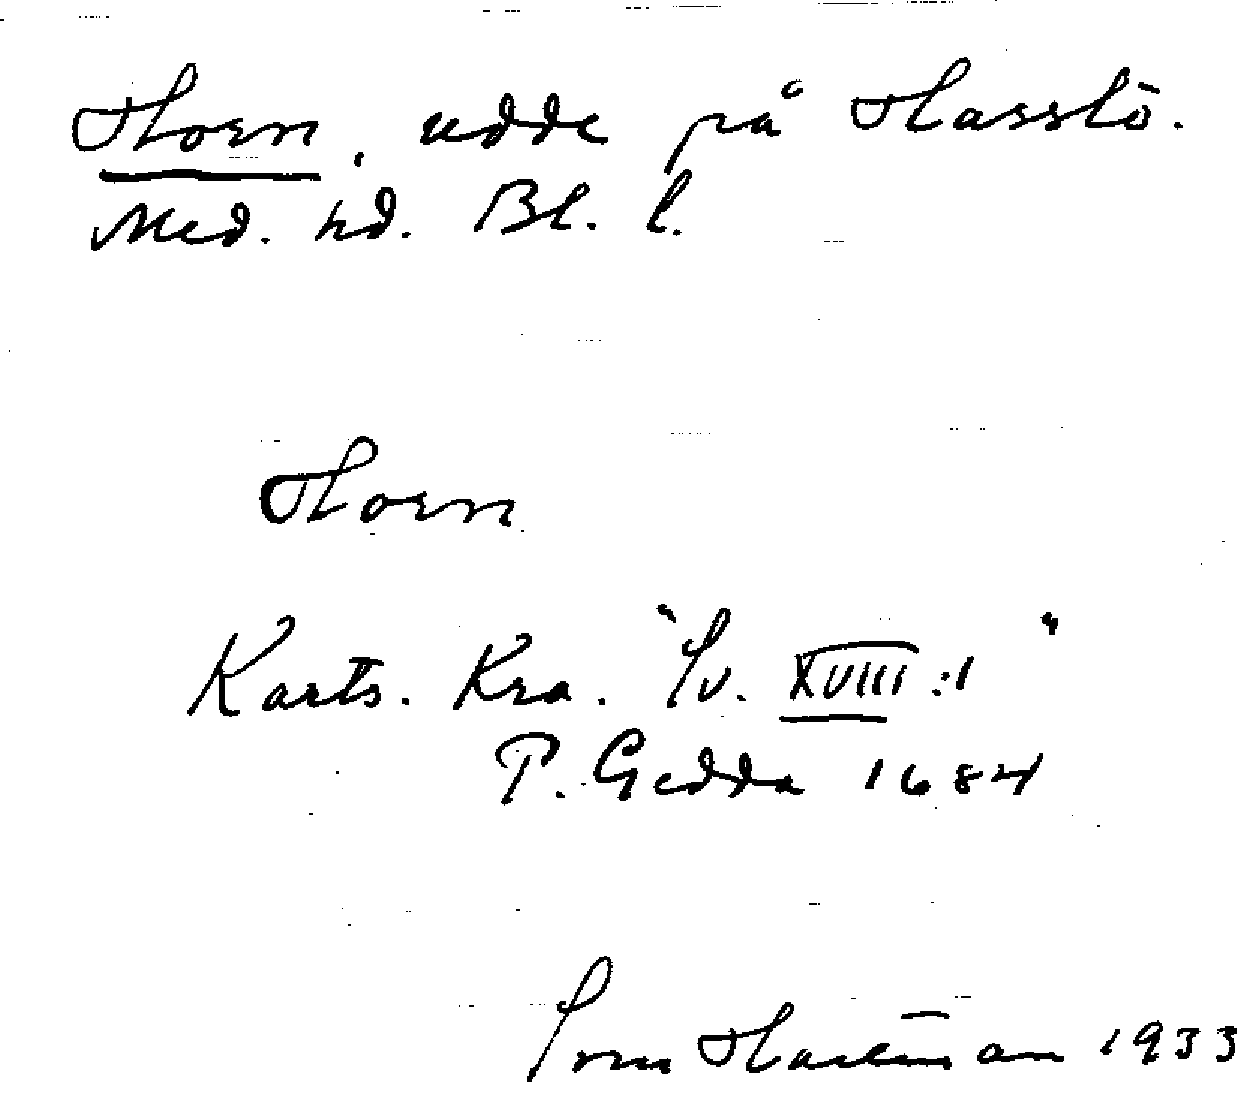 Horn, udde på Hasslö.
Med. hd. Bl. l.
Horn
Karts. Kra. "Sv. XVIII:1"
P. Gedda 1684
Hartman 1933